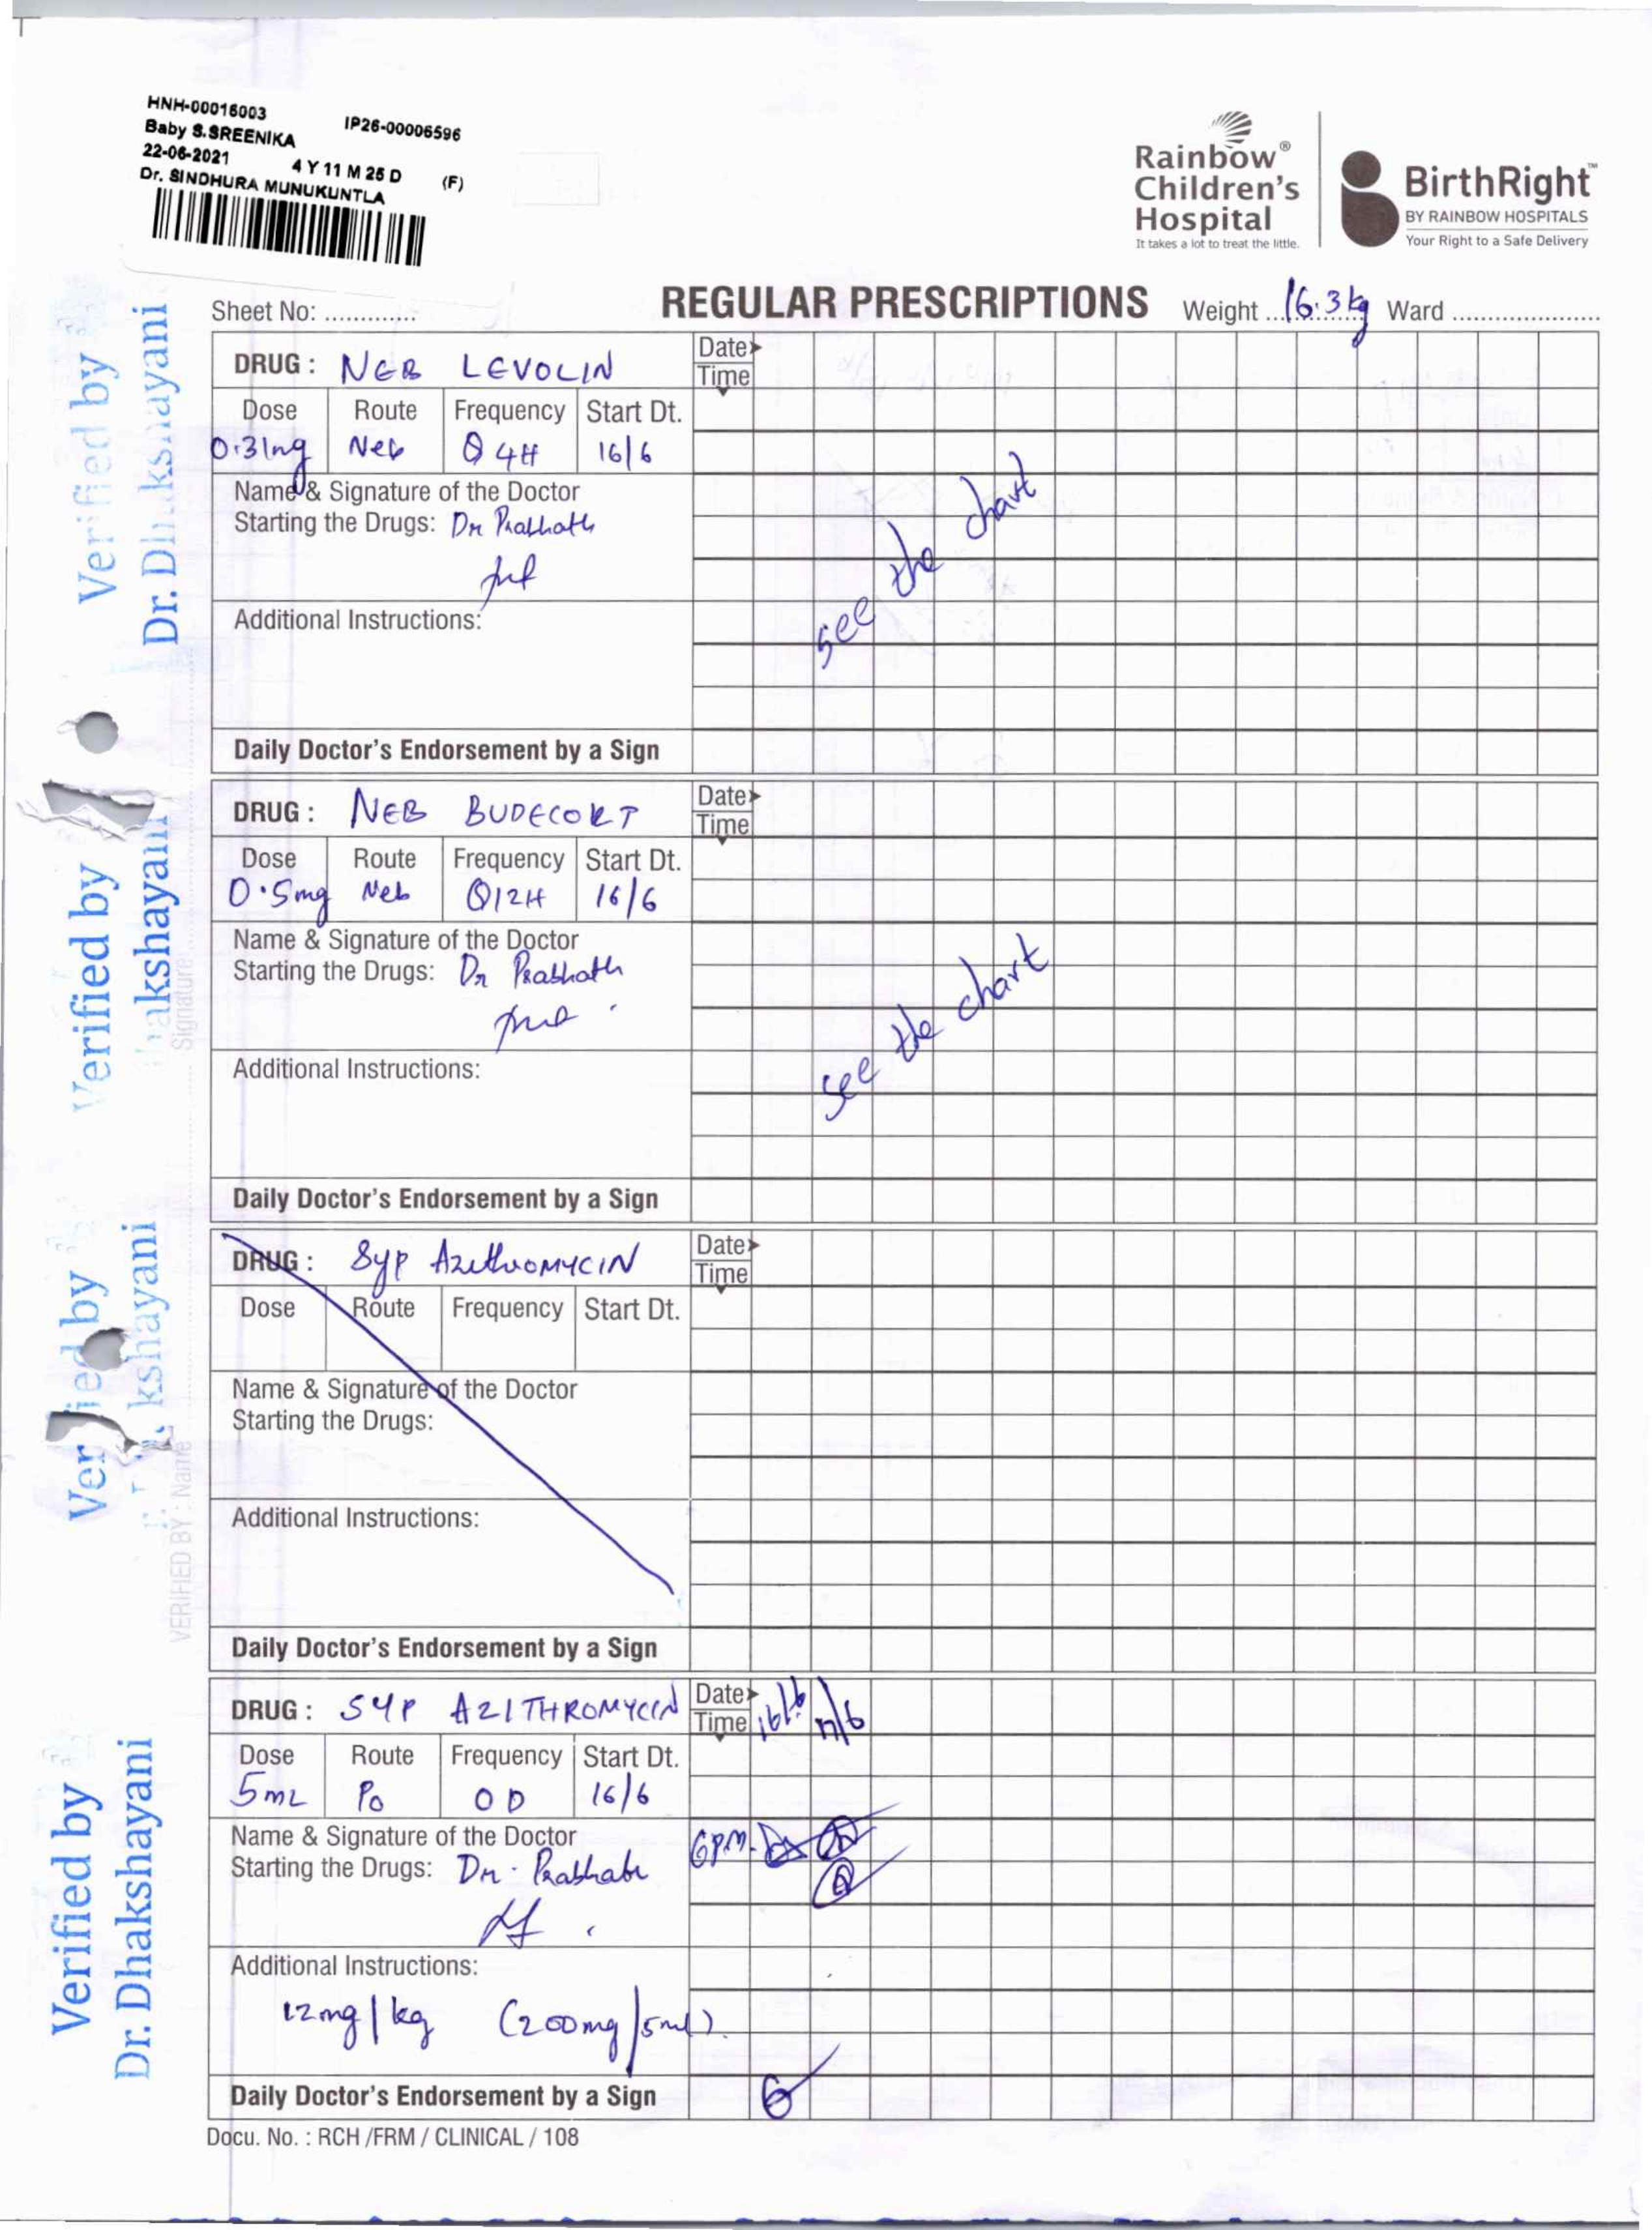 HNH-00016003 IP26-00006596
Baby S.SREENIKA
22-06-2021 4 Y 11 M 25 D (F)
Dr. SINDHURA MUNUKUNTLA
Rainbow®
Children's
Hospital
It takes a lot to treat the little.
BirthRight™
BY RAINBOW HOSPITALS
Your Right to a Safe Delivery
Sheet No: .............
REGULAR PRESCRIPTIONS
Weight 16.3kg Ward .....................
DRUG : NEB LEVOLIN
Date
Time
Dose Route Frequency Start Dt.
0.31mg Neb Q4H 16/6
Name & Signature of the Doctor
Starting the Drugs: Dr Prabhath
see the chart
Additional Instructions:
Daily Doctor's Endorsement by a Sign
DRUG : NEB BUDECORT
Date
Time
Dose Route Frequency Start Dt.
0.5mg Neb Q12H 16/6
Name & Signature of the Doctor
Starting the Drugs: Dr Prabhath
see the chart
Additional Instructions:
Daily Doctor's Endorsement by a Sign
DRUG : Syp AzithroMYCIN
Date
Time
Dose Route Frequency Start Dt.
Name & Signature of the Doctor
Starting the Drugs:
Additional Instructions:
Daily Doctor's Endorsement by a Sign
DRUG : SYP AZITHROMYCIN
Date 16/6 17/6
Time
Dose Route Frequency Start Dt.
5mL Po OD 16/6
Name & Signature of the Doctor
Starting the Drugs: Dr. Prabhath
6PM
Additional Instructions:
12mg/kg (200mg/5ml).
Daily Doctor's Endorsement by a Sign
Docu. No. : RCH /FRM / CLINICAL / 108
Verified by
Dr. Dhakshayani
Verified by
Dhakshayani
Signature
Verified by
kshayani
VERIFIED BY : Name
Verified by
Dr. Dhakshayani